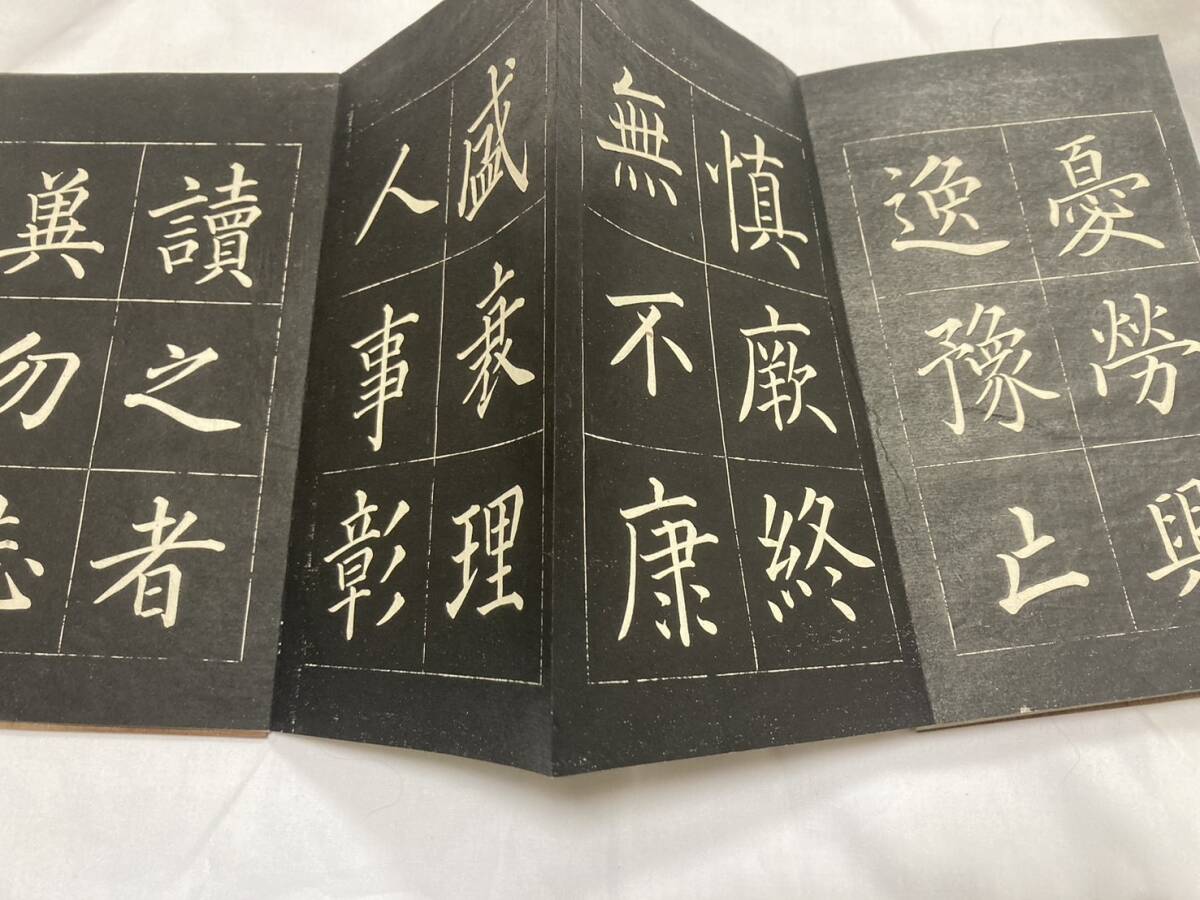 憂勞興
逸豫亡
慎厥終
無不康
盛衰理
人事彰
讀之者
冀勿忘